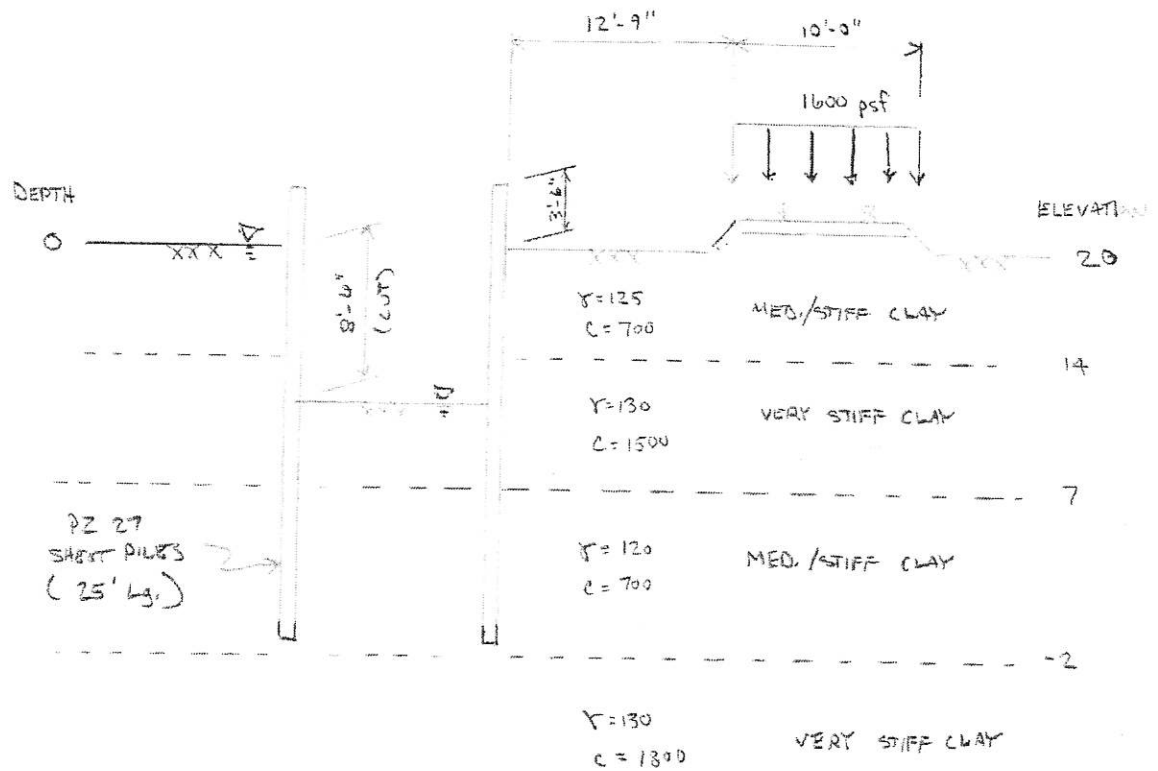 12'-9"
10'-0"
1600 psf
3'-6"
DEPTH
ELEVATION
0
20
8'-6"
(CUT)
γ=125
C=700
MED./STIFF CLAY
14
γ=130
C=1500
VERY STIFF CLAY
7
PZ 27
SHEET PILES
(25' Lg.)
γ=120
C=700
MED./STIFF CLAY
-2
γ=130
C=1300
VERY STIFF CLAY